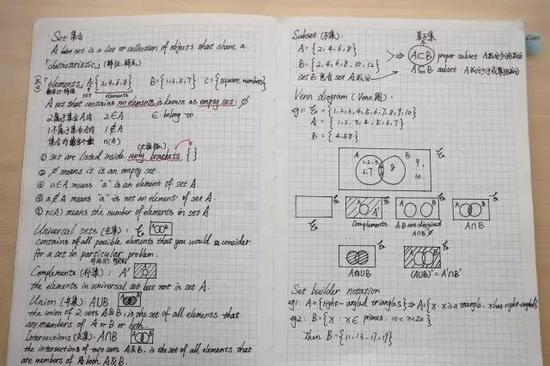 Set 集合
A ~~box~~ set is a list or collection of objects that share a
characteristic」(特征, 特点)
elements, A={2,4,6,8} B={1,2,5,7} C={square numbers}
set elements
A set that contains no elements is known as empty set: ∅
2属于集合A内 2∈A ∈ belong to
1不属于集合A内 1∉A
n(A)
① set are listed inside curly brackets. { }
② ∅ means it is an empty set.
③ a∈A means "a" is an element of set A.
④ a∉A means "a" is not an element of set A.
⑤ n(A) means the number of elements in set A.
Universal sets (全集): ξ
contains of all possible elements that you would consider
for a set in particular problem.
Complements (补集): A'
the elements in universal set but not in set A.
Union (并集): A∪B
the union of 2 sets A&B, is the set of all elements that
are members of A or B or both.
Intersections (交集): A∩B
the intersections of two sets A&B, is the set of all elements that
are members of both A&B.
Subset (子集): 真子集
A={2,4,6,8}
B={2,4,6,8,10,12}
A⊂B proper subset
A⊆B subset
set B 包含 set A
Venn diagram (Venn图):
eg1: ξ={1,2,3,4,5,6,7,8,9,10}
A={1,2,3,4,5,6,7}
B={4,5,8}
A B
1,2,3
6,7
8
9,
10.
ξ
A A'
Complements
A B
A,B are disjoined
A∩B ∅
A B
A∩B
A∪B
(A∪B)'=A'∩B'
Set builder notation
eg1: A={right-angled triangles} ⇒ A={x: x is a triangle, x has right-angle}
eg2: B={x: x∈primes, 10<x<20}
Then B={11,13,17,19}